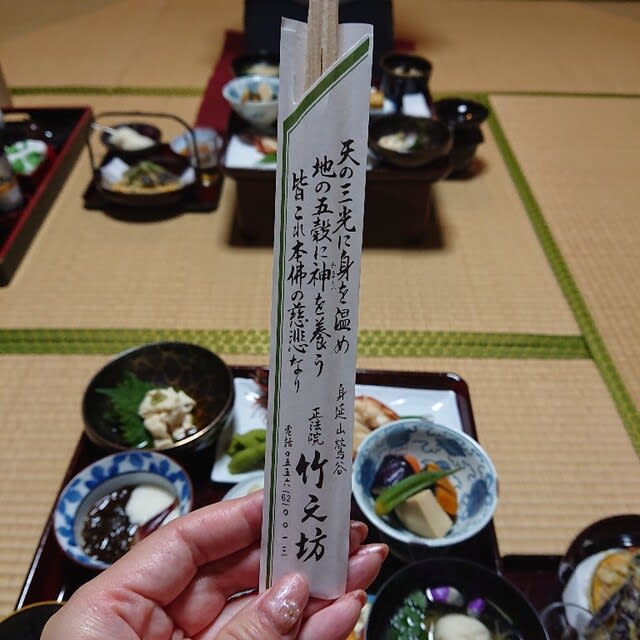 天の三光に身を温め
地の五穀に神を養う
皆これ本佛の慈悲なり
身延山鶯谷
正法院
竹之坊
電話〇五五六(62)〇〇一三